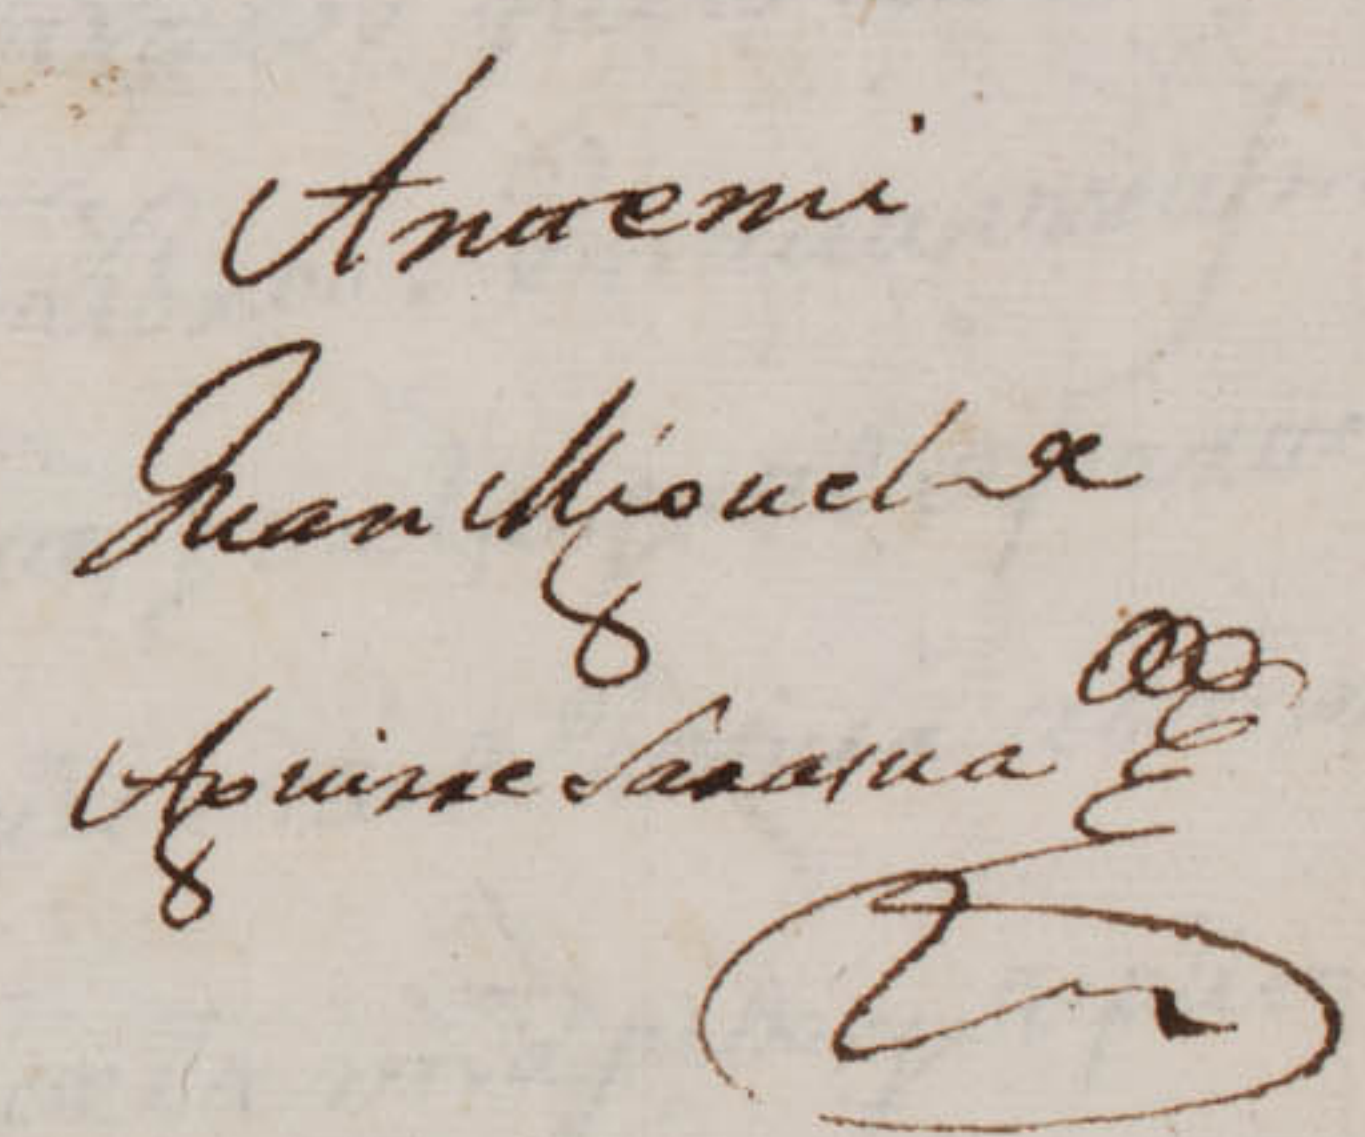 Antemi
Juan Miguel de
Aguirre Sarasua